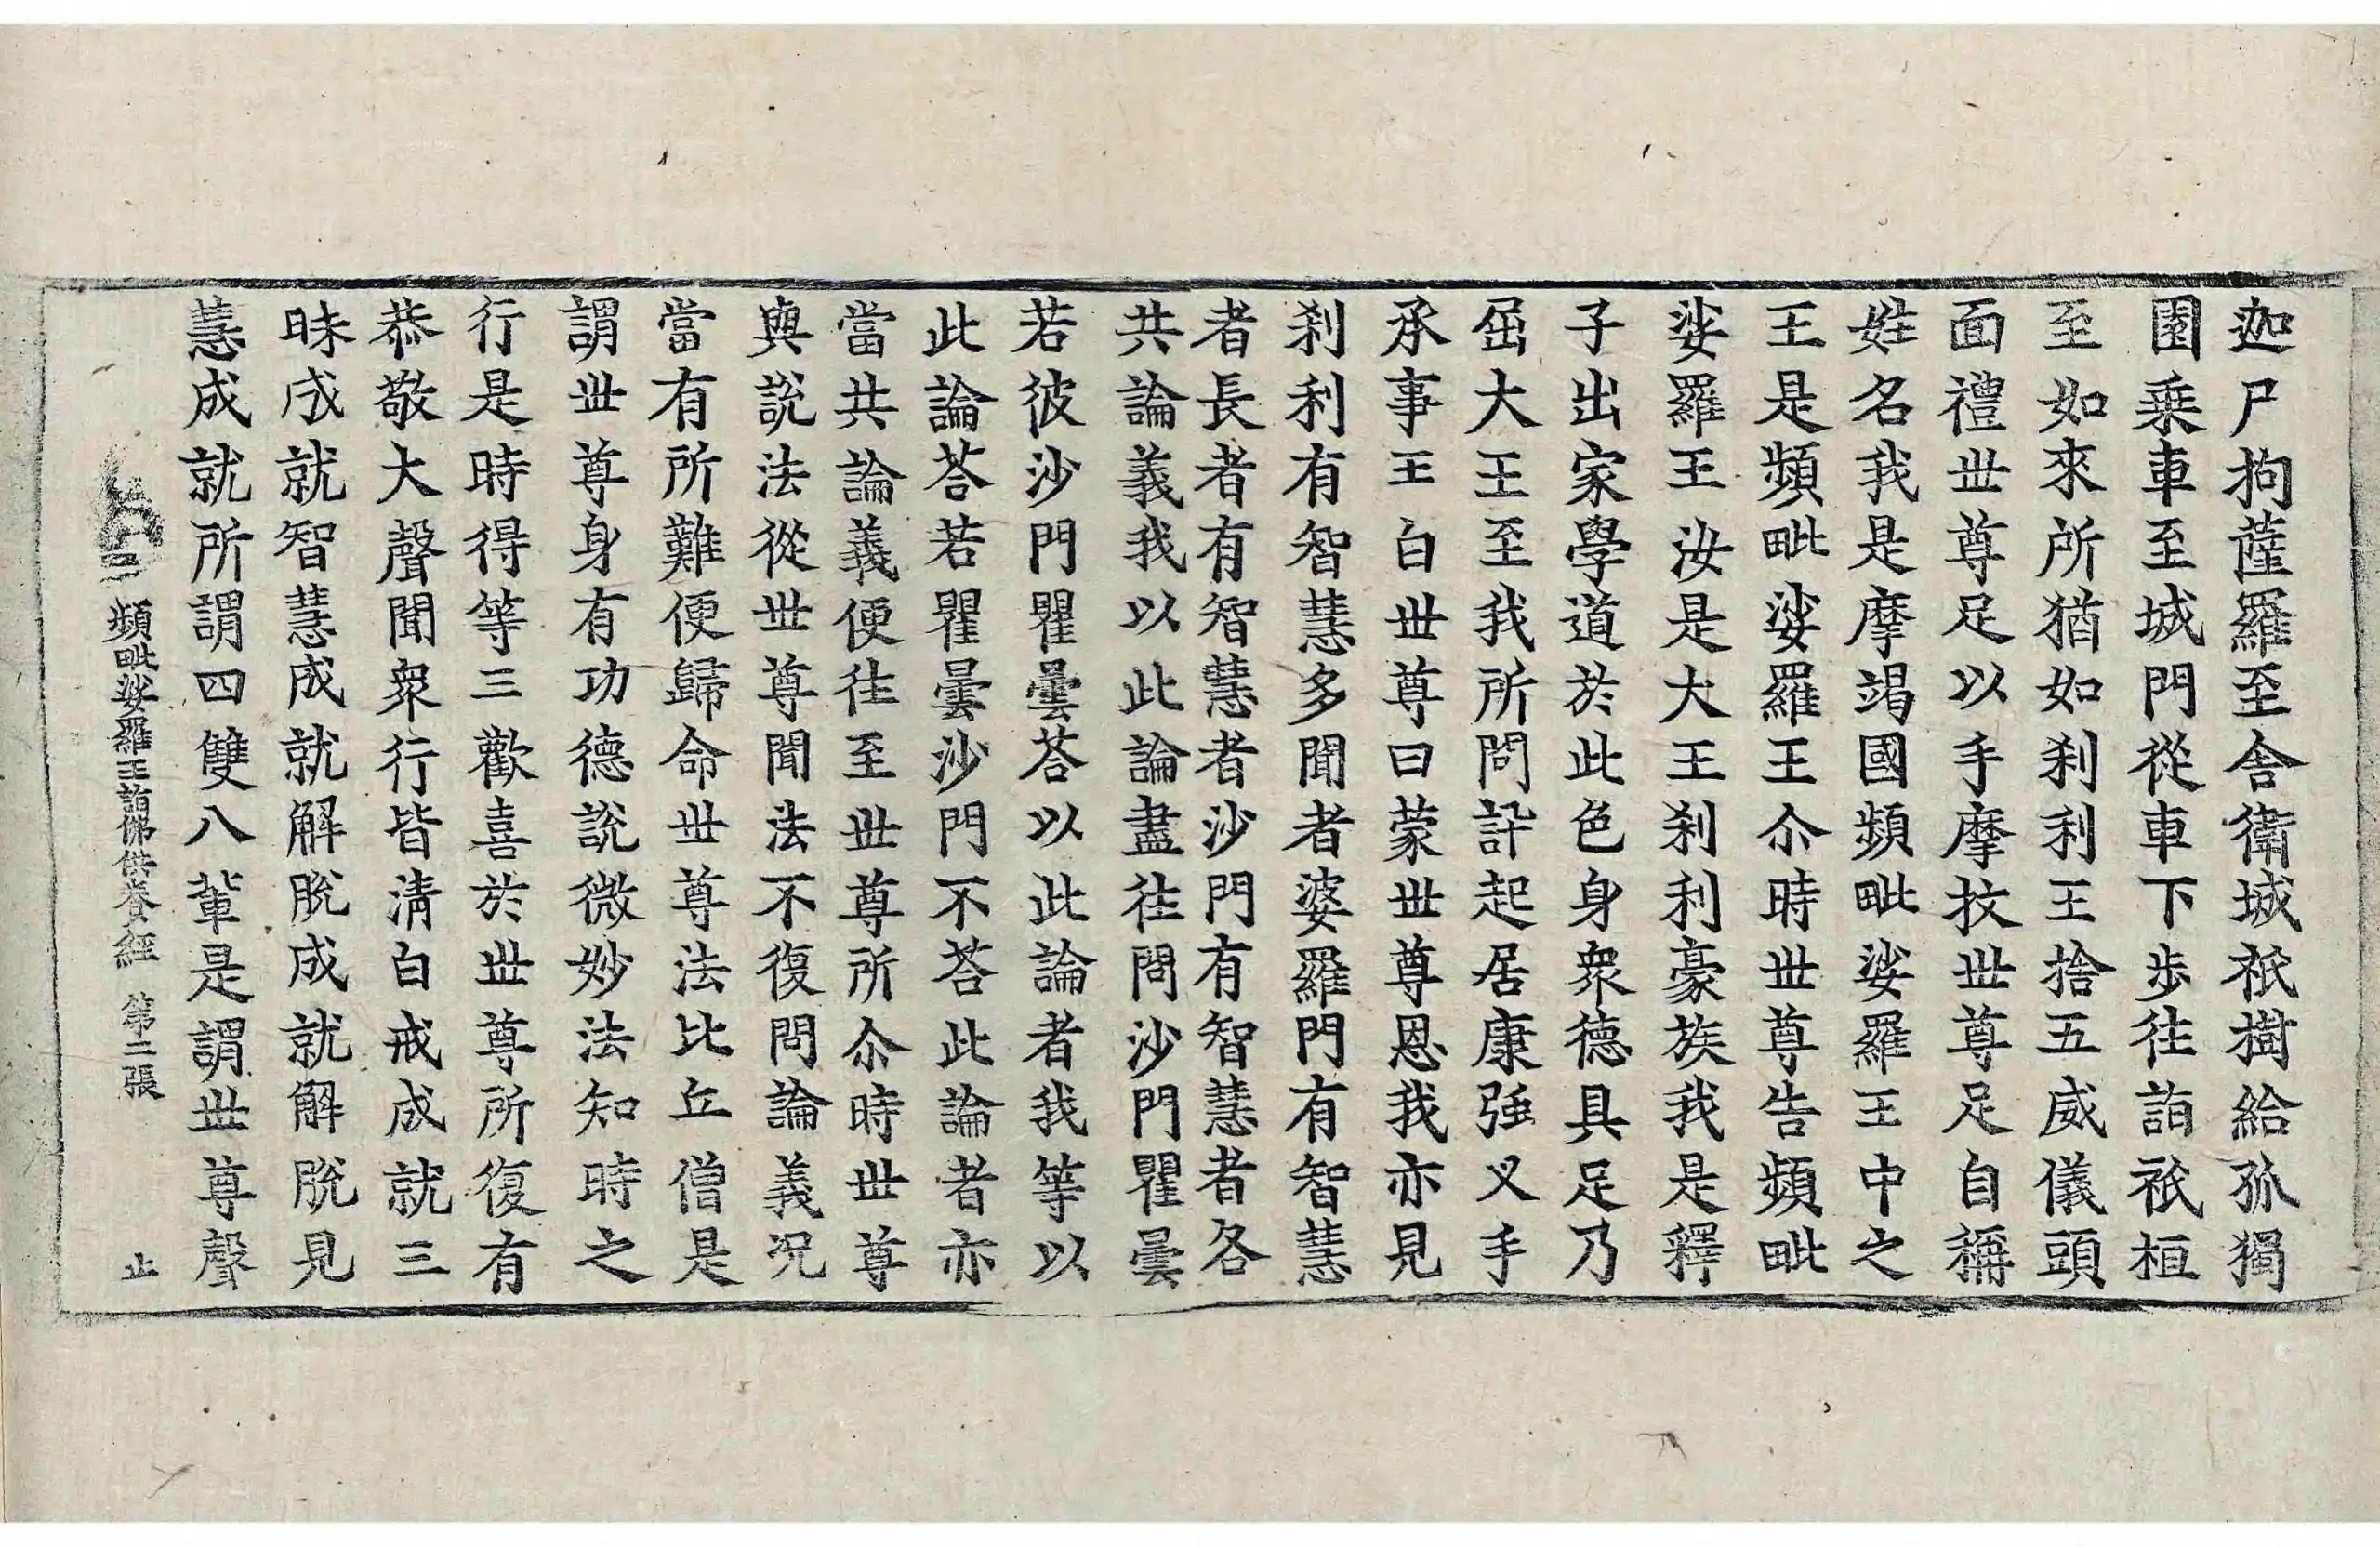 迦尸拘薩羅至舎衛城祇樹給孤獨
園乗車至城門從車下歩往詣祇桓
至如來所猶如剎利王捨五威儀頭
面禮世尊足以手摩抆世尊足自稱
姓名我是摩竭國頻毗娑羅王中之
王是頻毗娑羅王尒時世尊告頻毗
娑羅王汝是大王剎利豪族我是釋
子出家學道於此色身衆德具足乃
屈大王至我所問訊起居康強叉手
承事王白世尊曰蒙世尊恩我亦見
剎利有智慧多聞者婆羅門有智慧
者長者有智慧者沙門有智慧者各
共論義我以此論盡往問沙門瞿曇
若彼沙門瞿曇荅以此論者我等以
此論荅若瞿曇沙門不荅此論者亦
當共論義便往至世尊所尒時世尊
與說法從世尊聞法不復問論義况
當有所難便歸命世尊法比丘僧是
謂世尊身有功德說微妙法知時之
行是時得等三歡喜於世尊所復有
恭敬大聲聞衆行皆清白戒成就三
昧成就智慧成就解脫成就解脫見
慧成就所謂四雙八輩是謂世尊聲
頻毗娑羅王詣佛供養經 第二張 止